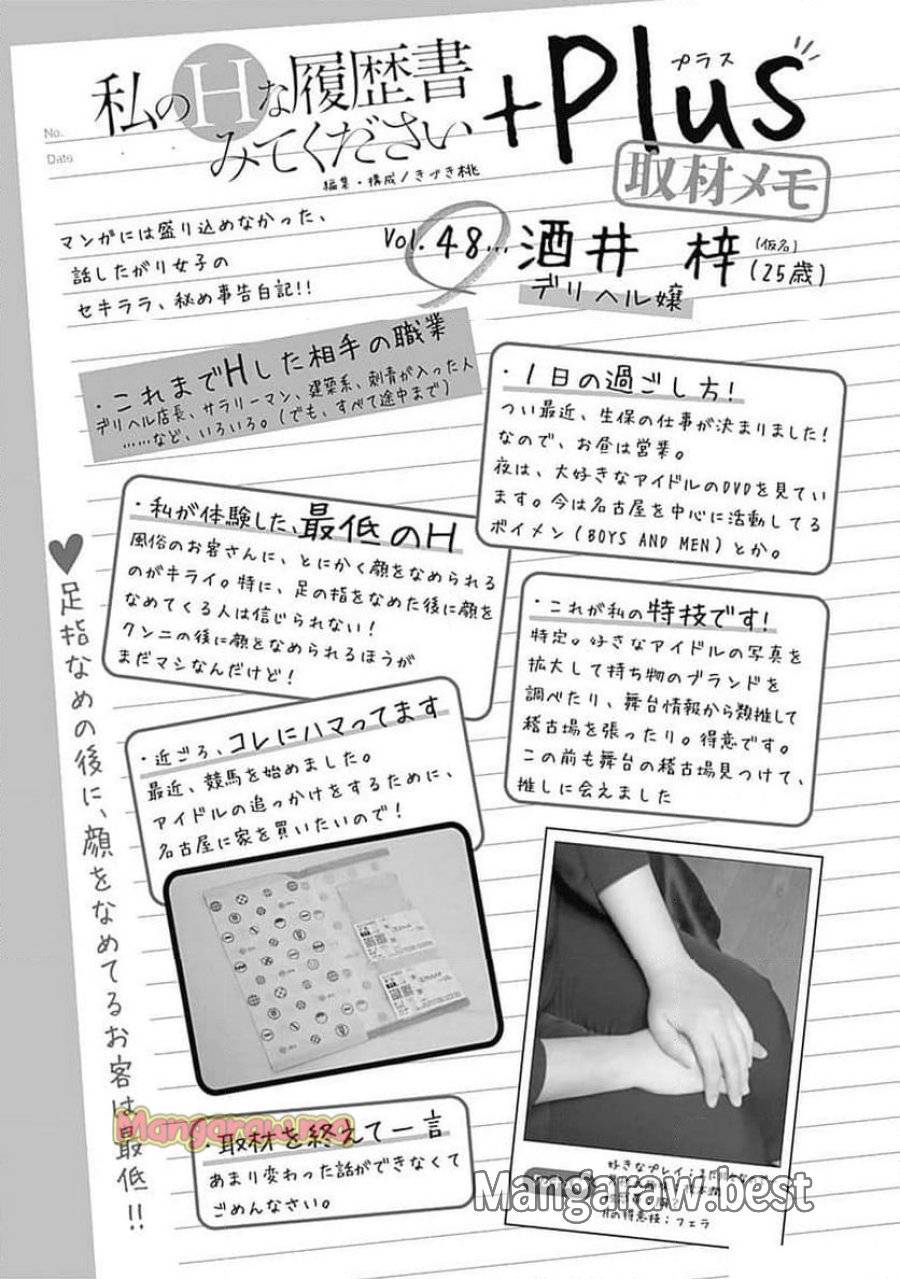 私のHな履歴書
みてください
+Plus
プラス
No.
Date
編集・構成/きづき桃
取材メモ
マンガには盛り込めなかった、
話したがり女子の
セキララ、秘め事告白記!!
Vol.48…
酒井 梓
(仮名)
(25歳)
デリヘル嬢
・これまでHした相手の職業
デリヘル店長、サラリーマン、建築系、刺青が入った人
……など、いろいろ。(でも、すべて途中まで)
・1日の過ごし方!
つい最近、生保の仕事が決まりました!
なので、お昼は営業。
夜は、大好きなアイドルのDVDを見てい
ます。今は名古屋を中心に活動してる
ボイメン(BOYS AND MEN)とか。
・私が体験した、最低のH
風俗のお客さんに、とにかく顔をなめられる
のがキライ。特に、足の指をなめた後に顔を
なめてくる人は信じられない!
クンニの後に顔をなめられるほうが
まだマシなんだけど!
・これが私の特技です!
特定。好きなアイドルの写真を
拡大して持ち物のブランドを
調べたり、舞台情報から類推して
稽古場を張ったり。得意です。
この前も舞台の稽古場見つけて、
推しに会えました
・近ごろ、コレにハマってます
最近、競馬を始めました。
アイドルの追っかけをするために、
名古屋に家を買いたいので!
♥足指なめの後に、顔をなめてるお客は最低!!
Mangaraw.me
・取材を終えて一言
あまり変わった話ができなくて
ごめんなさい。
好きなプレイ;
Mangaraw.best
Hの得意技;フェラ